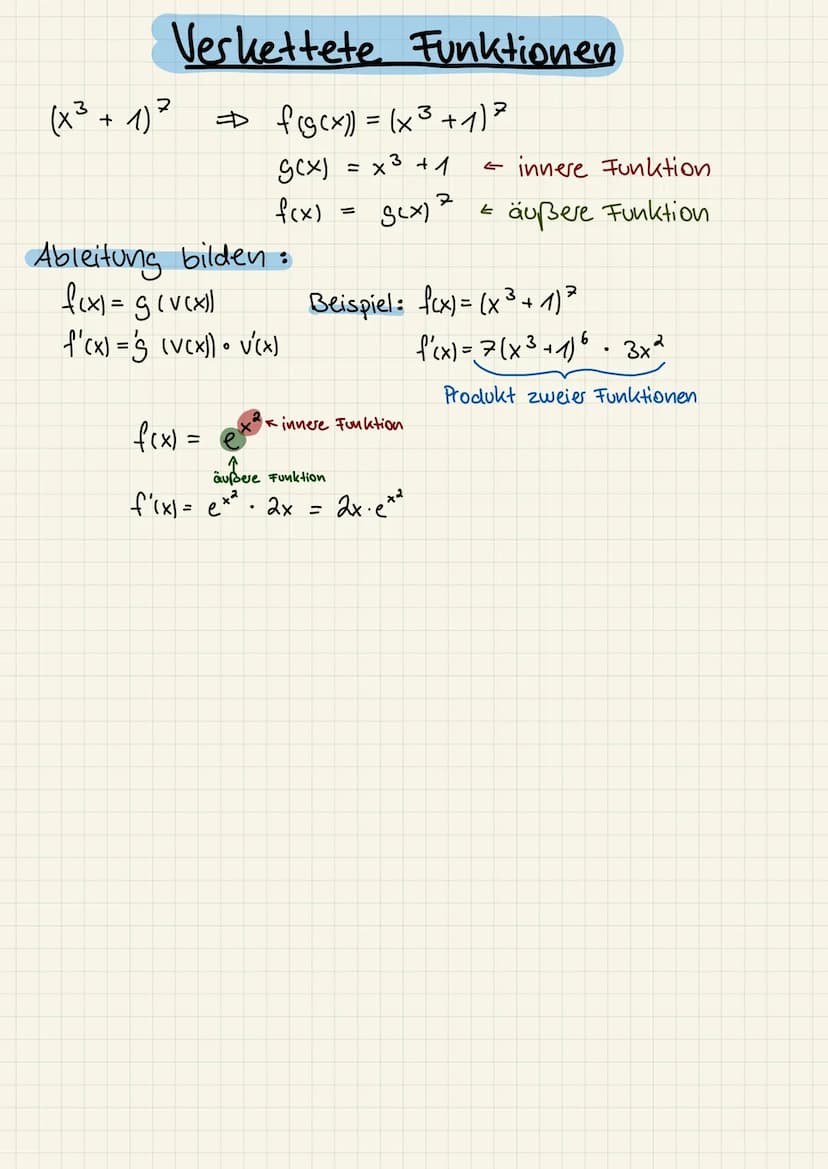 Verkettete Funktionen
(x³ + 1)⁷ ⇒ f(g(x)) = (x³ + 1)⁷
g(x) = x³ + 1 ← innere Funktion
f(x) = g(x)⁷ ← äußere Funktion
Ableitung bilden:
f(x) = g(v(x))
f'(x) = g'(v(x)) • v'(x)
Beispiel: f(x) = (x³ + 1)⁷
f'(x) = 7(x³ + 1)⁶ · 3x²
Produkt zweier Funktionen
f(x) = e^x² ← innere Funktion
↑
äußere Funktion
f'(x) = e^x² · 2x = 2x · e^x²